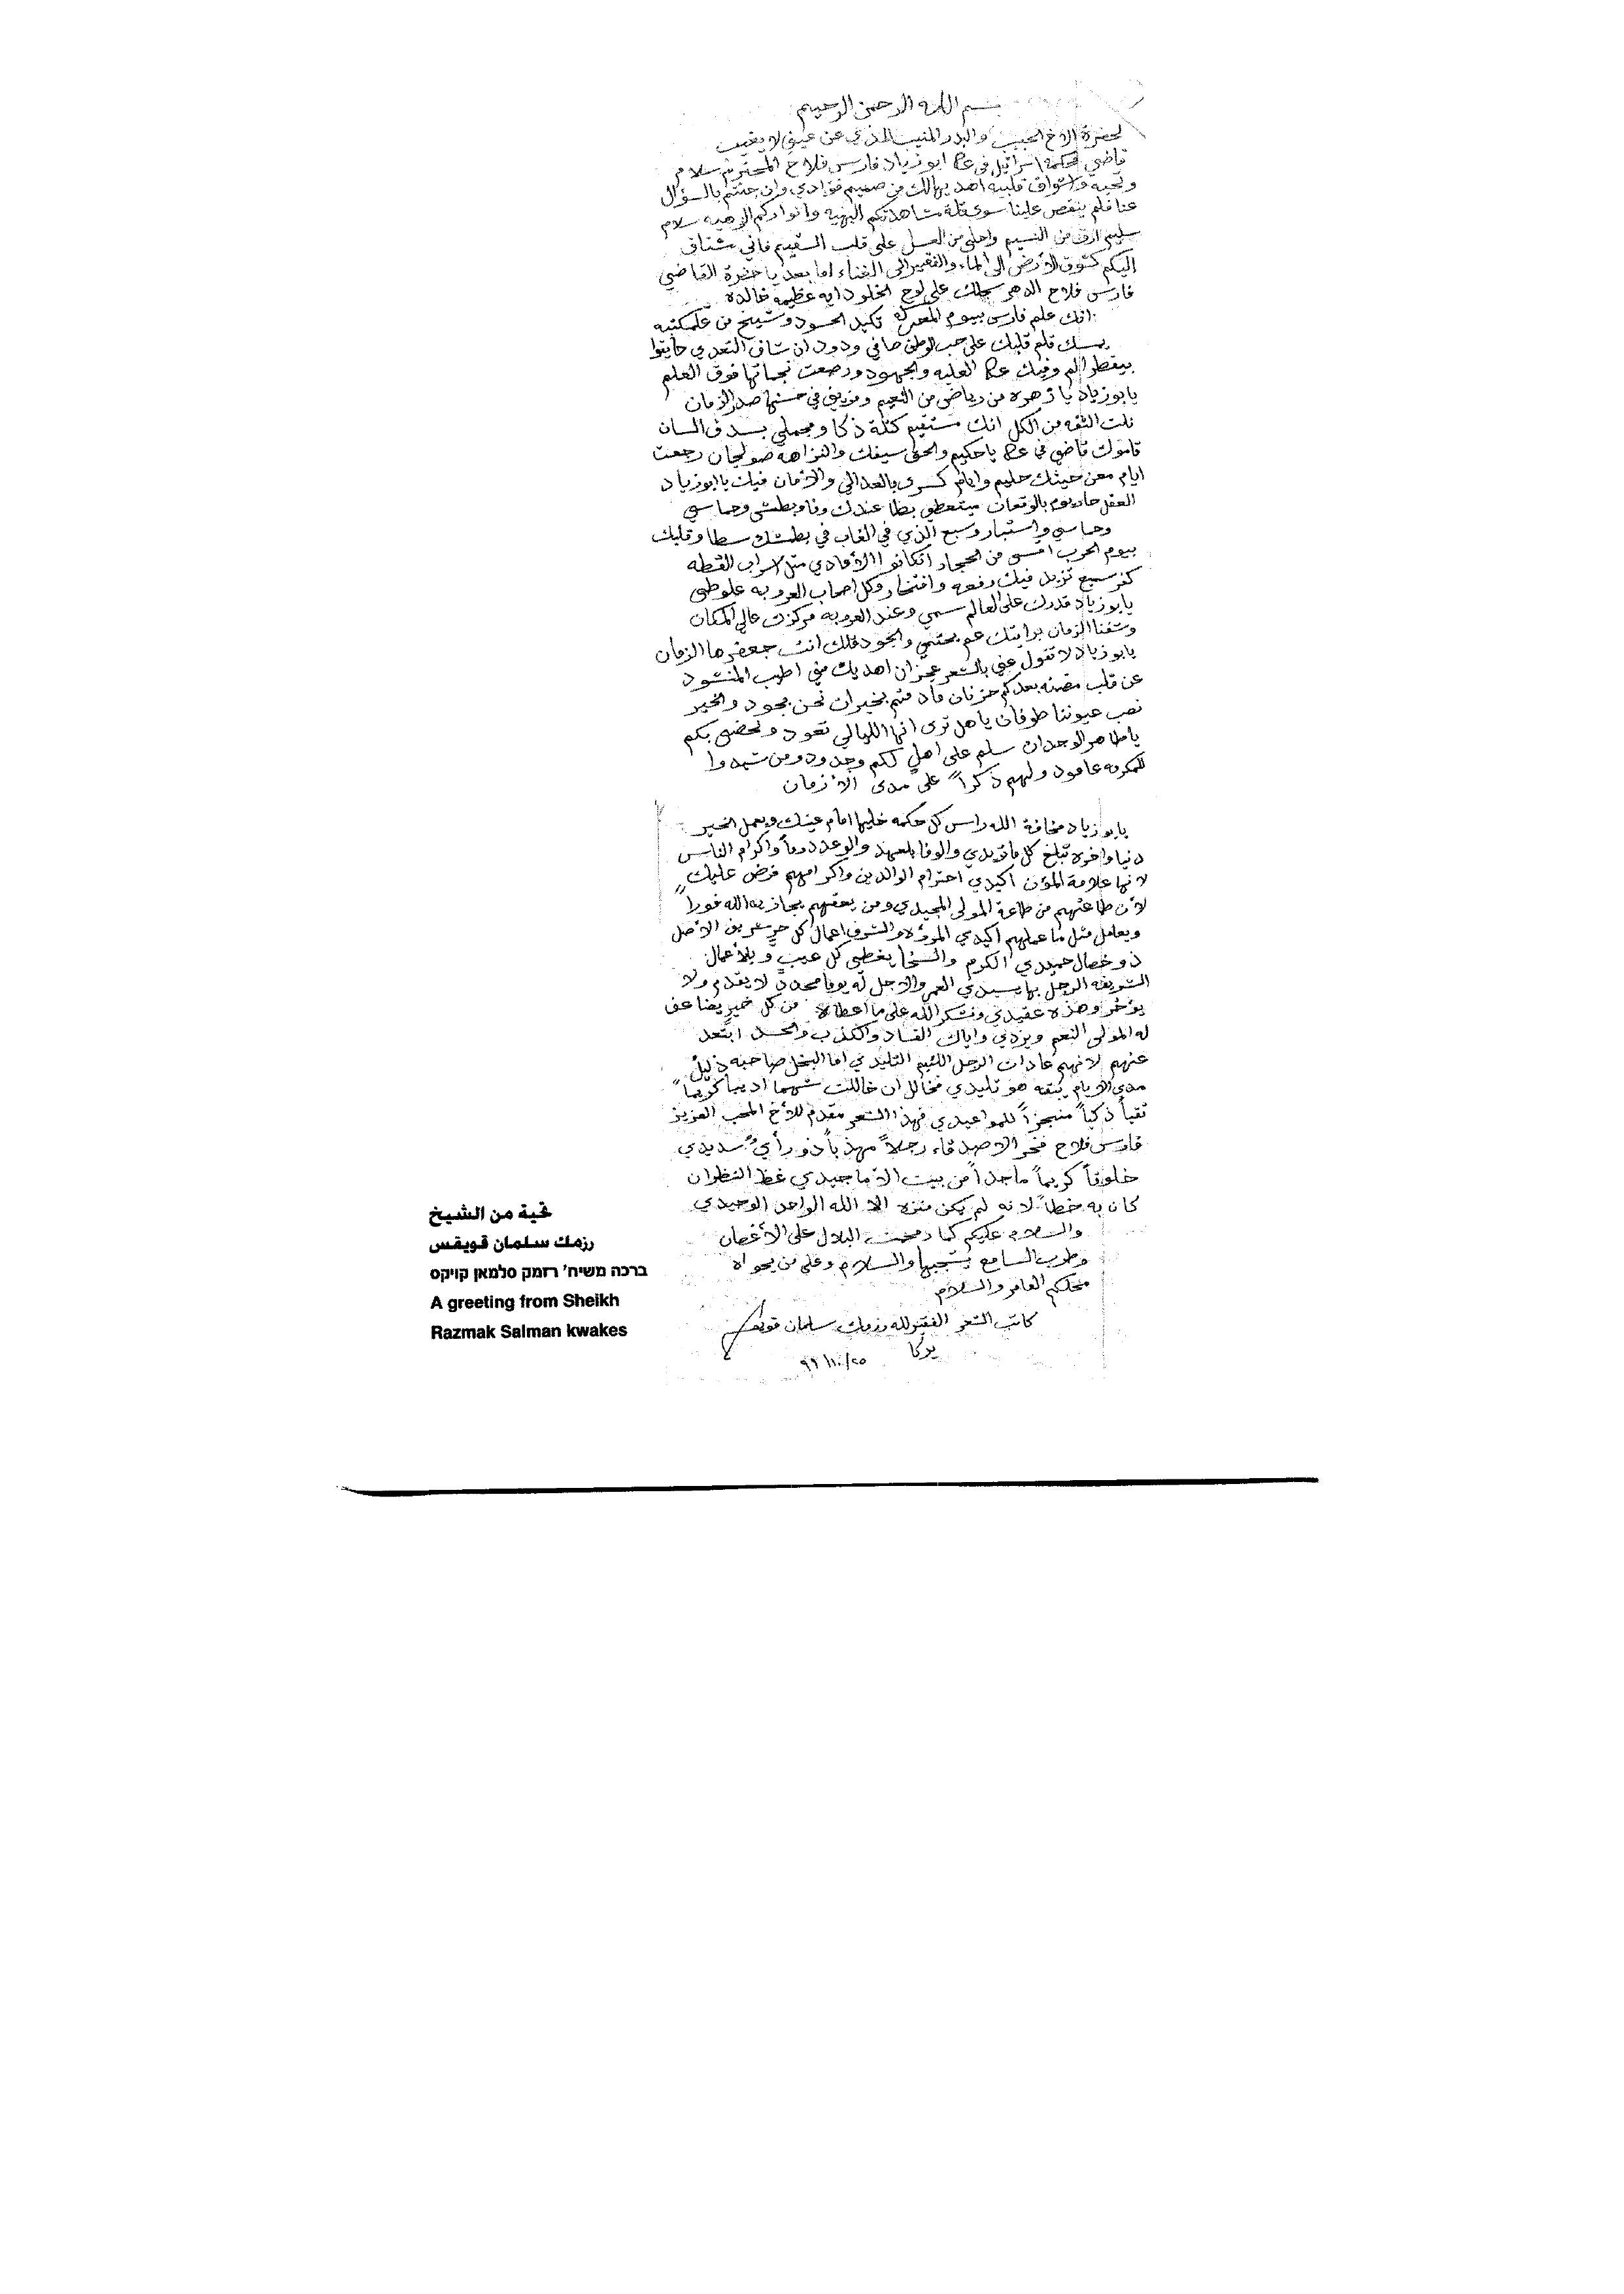 بسم الله الرحمن الرحيم
لحضرة الاخ الحبيب والبدر المنيب الذي عن عيني لا يغيب
قاضي محكمة اسرائيل في عكا ابو زياد فارس فلاح المحترم سلام
وتحية واشواق قلبيه اهديها لك من صميم فؤادي وان جئتم بالسؤال
عنا فلم ينقص علينا سوى قلة مشاهدتكم البهيه وانواركم الزهيه سلام
سليم ارق من النسيم واحلى من العسل على قلب السقيم فاني مشتاق
اليكم كشوق الأرض الى الماء والفقير الى الغناء اما بعد يا حضرة القاضي
فارس فلاح الدهر سجلك على لوح الخلود ايه عظيمه خالده
انك علم فارس بيوم المعركة تكيد الحسود وشيخ من
يمسك قلم قلبك على حب الوطن صافي ودود ان شاف التعدي
بيقطر الم وفيك عكا العليه والجهود ورصعت نجماتها فوق العلم
يابو زياد يا زهره من رياض من النعيم ومزيق في حسنها صدر الزمان
نلت الثقه من الكل انك مستقيم كتلة ذكا ومجملي بسدق السان
قاموك قاضي في عكا يا حكيم والحق سيفك والنزاهه صولجان رجعت
ايام معن حيثك حليم وايام كسرى بالعدالي والأمان فيك يا ابو زياد
العقل حاد يوم بالوقعات ميتعطي بطا عندك وفا وبطش وحماسي
وحماسي واستبار وسبع الذي في الغاب في بطشك سطا وقلبك
بيوم الحرب اقسى من الحجار انكانوا الأعادي مثل اسراب القطه
كفر سميع تزيد فيك رفعه وافتخار وكل اصحاب العروبه
يابو زياد قدرك على العالم سمي وعند العروبه مركزك عالي المكان
وشفنا الزمان برايتك عم يحتمي والجود فلك انت جعفر ها الزمان
يابو زياد لا تقول عني بالشعر عجزان اهديك مني اطيب المنشود
عن قلب مضنه بعدكم حزنان ما دمتم بخير ان نحن بجود والخير
نصب عيوننا طوفان يا هل ترى انها الليالي تعود ونحضى بكم
يا طاهر الوجدان سلم على اهل لكم وجدود ومن شيدوا
للمكرمه عامود ولهم ذكراً على مدى الأزمان
يابو زياد مخافة الله راس كل حكمه خليها امام عينك وبعمل الخير
دنيا واخره تبلغ كل ما تريدي والوفا بلعهد والوعد دوماً واكرام الناس
لانها علامة المؤمن اكيدي احترام الوالدين واكرامهم فرض عليك
لأن طاعتهم من طاعة المولى المجيدي ومن يعقهم يجازيه الله فوراً
ويعامل مثل ما عملهم اكيدي المروءه والشرف اعمال كل حر شريف الأصل
ذو خصال حميدي الكرم والسخا يغطي كل عيب وبلأعمال
الشريفه الرجل بها سيدي العمر والاجل له يوماً محدداً لا يقدم ولا
يؤخر وهذه عقيدي ونشكر الله على ما اعطاه من كل خير يضاعف
له المولى النعم ويزدي واياك الفساد والكذب والحسد ابتعد
عنهم لانهم عادات الرجل اللئيم التليدي اما البخل صاحبه ذليل
مدى الايام يبقه هو تليدي فخالل ان خاللت شهما اديباً كريماً
تقياً ذكياً منجزاً للمواعيدي فهذا الشعر مقدم للأخ المحب العزيز
فارس فلاح فخر الاصدقاء رجلاً مهذباً ذو رأي سديدي
خلوقاً كريماً ماجداً من بيت الاماجيدي غظ النظر ان
كان به خطأ لانه لم يكن منزه الا الله الواحد الوحيدي
والسلام عليكم كما البلابل على الأغصان
وطرب السامع والسلام وعلى من يحواه
محلكم العامر والسلام
كاتب الشعر الفقير لله رزمك سلمان قويقس
يركا ٩٦/١٠/٢٥
تحية من الشيخ
رزمك سلمان قويقس
ברכה משיח' רזמק סלמאן קויקס
A greeting from Sheikh
Razmak Salman kwakes